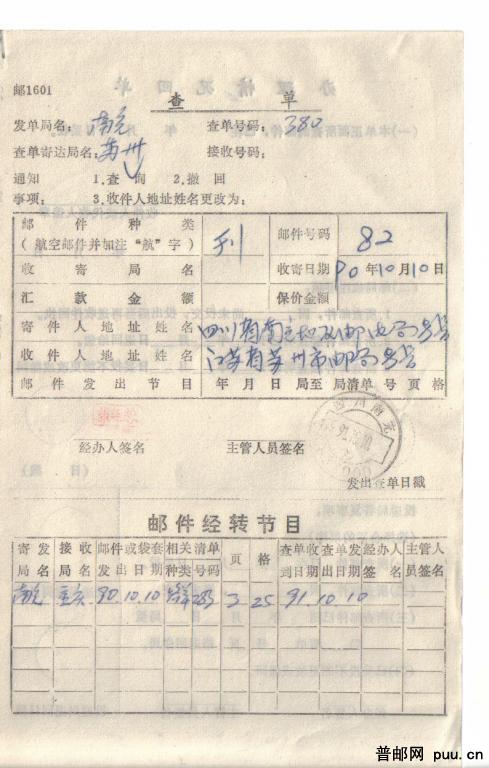 邮1601
查 单
发单局名：南充 查单号码：380
查单寄达局名：苏州 接收号码：
通知 1.查询 2.撤回
事项： 3.收件人地址姓名更改为：
邮件种类 刊 邮件号码 82
（航空邮件并加注“航”字）
收寄局名 收寄日期 90年10月10日
汇款金额 保价金额
寄件人地址姓名 四川省南充地区邮电局
收件人地址姓名 江苏省苏州市邮局
邮件发出节目 年 月 日 局至 局清单 号 页 格
经办人签名 主管人员签名
发出查单日戳
邮件经转节目
寄发局名 接收局名 邮件或袋套发出日期 相关种类 清单号码 页 格 查单收到日期 查单发出日期 经办人签名 主管人员签名
南充 重庆 90.10.10 283 3 25 91.10.10
普邮网 puu.cn